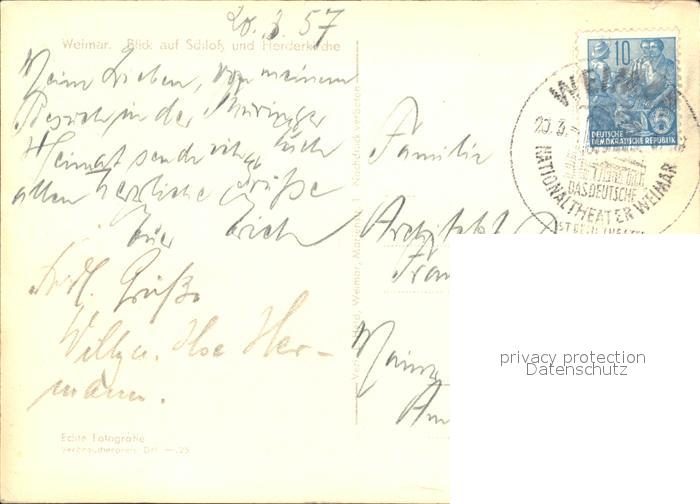 20.3.57
Weimar. Blick auf Schloß und Herderkirche
Meine Lieben, von meinem
Besuch in der Thüringer
Heimat sende ich Euch
allen herzliche Grüße
Euer Erich
Herzl. Grüße
Willy u. Ilse Her-
mann.
Echte Fotografie
Verbraucherpreis DM —.25
Weimar, 1
10
DEUTSCHE
DEMOKRATISCHE REPUBLIK
WEIMAR
20.3.
DAS DEUTSCHE
NATIONALTHEATER WEIMAR
Familie
Architekt
Mainz
privacy protection
Datenschutz